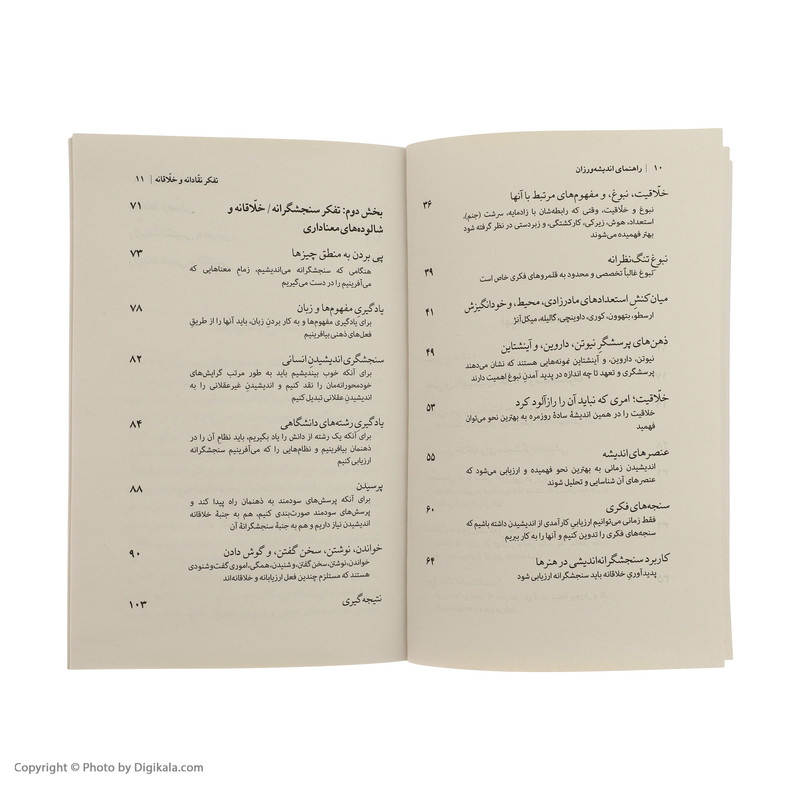 ۱۰ | راهنمای اندیشه‌ورزان
خلّاقیت، نبوغ، و مفهوم‌های مرتبط با آنها ۳۶
نبوغ و خلّاقیت، وقتی که رابطه‌شان با زادمایه، سرشت (جَنَم)،
استعداد، هوش، زیرکی، کارکُشتگی، و زبردستی در نظر گرفته شود
بهتر فهمیده می‌شوند
نبوغِ تنگ‌نظرانه ۳۹
نبوغ غالباً تخصصی و محدود به قلمروهای فکری خاص است
میان‌کنشِ استعدادهای مادرزادی، محیط، و خودانگیزش ۴۱
ارسطو، بتهوون، کوری، داوینچی، گالیله، میکل‌آنژ
ذهن‌های پرسشگر نیوتن، داروین، و آینشتاین ۴۹
نیوتن، داروین، و آینشتاین نمونه‌هایی هستند که نشان می‌دهند
پرسشگری و تعهد تا چه اندازه در پدید آمدنِ نبوغ اهمیت دارند
خلّاقیت؛ امری که نباید آن را رازآلود کرد ۵۳
خلّاقیت را در همین اندیشهٔ سادهٔ روزمره به بهترین نحو می‌توان
فهمید
عنصرهای اندیشه ۵۵
اندیشیدن زمانی به بهترین نحو فهمیده و ارزیابی می‌شود که
عنصرهای آن شناسایی و تحلیل شوند
سنجه‌های فکری ۶۰
فقط زمانی می‌توانیم ارزیابیِ کارآمدی از اندیشیدن داشته باشیم که
سنجه‌های فکری را تدوین کنیم و آنها را به کار ببریم
کاربرد سنجشگرانه‌اندیشی در هنرها ۶۴
پدیدآوریِ خلّاقانه باید سنجشگرانه ارزیابی شود
تفکر نقّادانه و خلّاقانه | ۱۱
بخش دوم: تفکر سنجشگرانه/ خلّاقانه و ۷۱
شالوده‌های معناداری
پی بردن به منطق چیزها ۷۳
هنگامی که سنجشگرانه می‌اندیشیم، زمامِ معناهایی که
می‌آفرینیم را در دست می‌گیریم
یادگیری مفهوم‌ها و زبان ۷۸
برای یادگیری مفهوم‌ها و به کار بردنِ زبان، باید آنها را از طریقِ
فعل‌های ذهنی بیافرینیم
سنجشگریِ اندیشیدنِ انسانی ۸۲
برای آنکه خوب بیندیشیم باید به طور مرتب گرایش‌های
خودمحورانه‌مان را نقد کنیم و اندیشیدنِ غیرعقلانی را به
اندیشیدنِ عقلانی تبدیل کنیم
یادگیری رشته‌های دانشگاهی ۸۴
برای آنکه یک رشته از دانش را یاد بگیریم، باید نظامِ آن را در
ذهنمان بیافرینیم و نظام‌هایی را که می‌آفرینیم سنجشگرانه
ارزیابی کنیم
پرسیدن ۸۸
برای آنکه پرسش‌های سودمند به ذهنمان راه پیدا کند و
پرسش‌های سودمند صورت‌بندی کنیم، هم به جنبهٔ خلاقانهٔ
اندیشیدن نیاز داریم و هم به جنبهٔ سنجشگرانهٔ آن
خواندن، نوشتن، سخن گفتن، و گوش دادن ۹۰
خواندن، نوشتن، سخن گفتن، و شنیدن، همگی، اموری گفت‌وشنودی
هستند که مستلزم چندین فعل ارزیابانه و خلاقانه‌اند
نتیجه‌گیری ۱۰۳
Copyright © Photo by Digikala.com